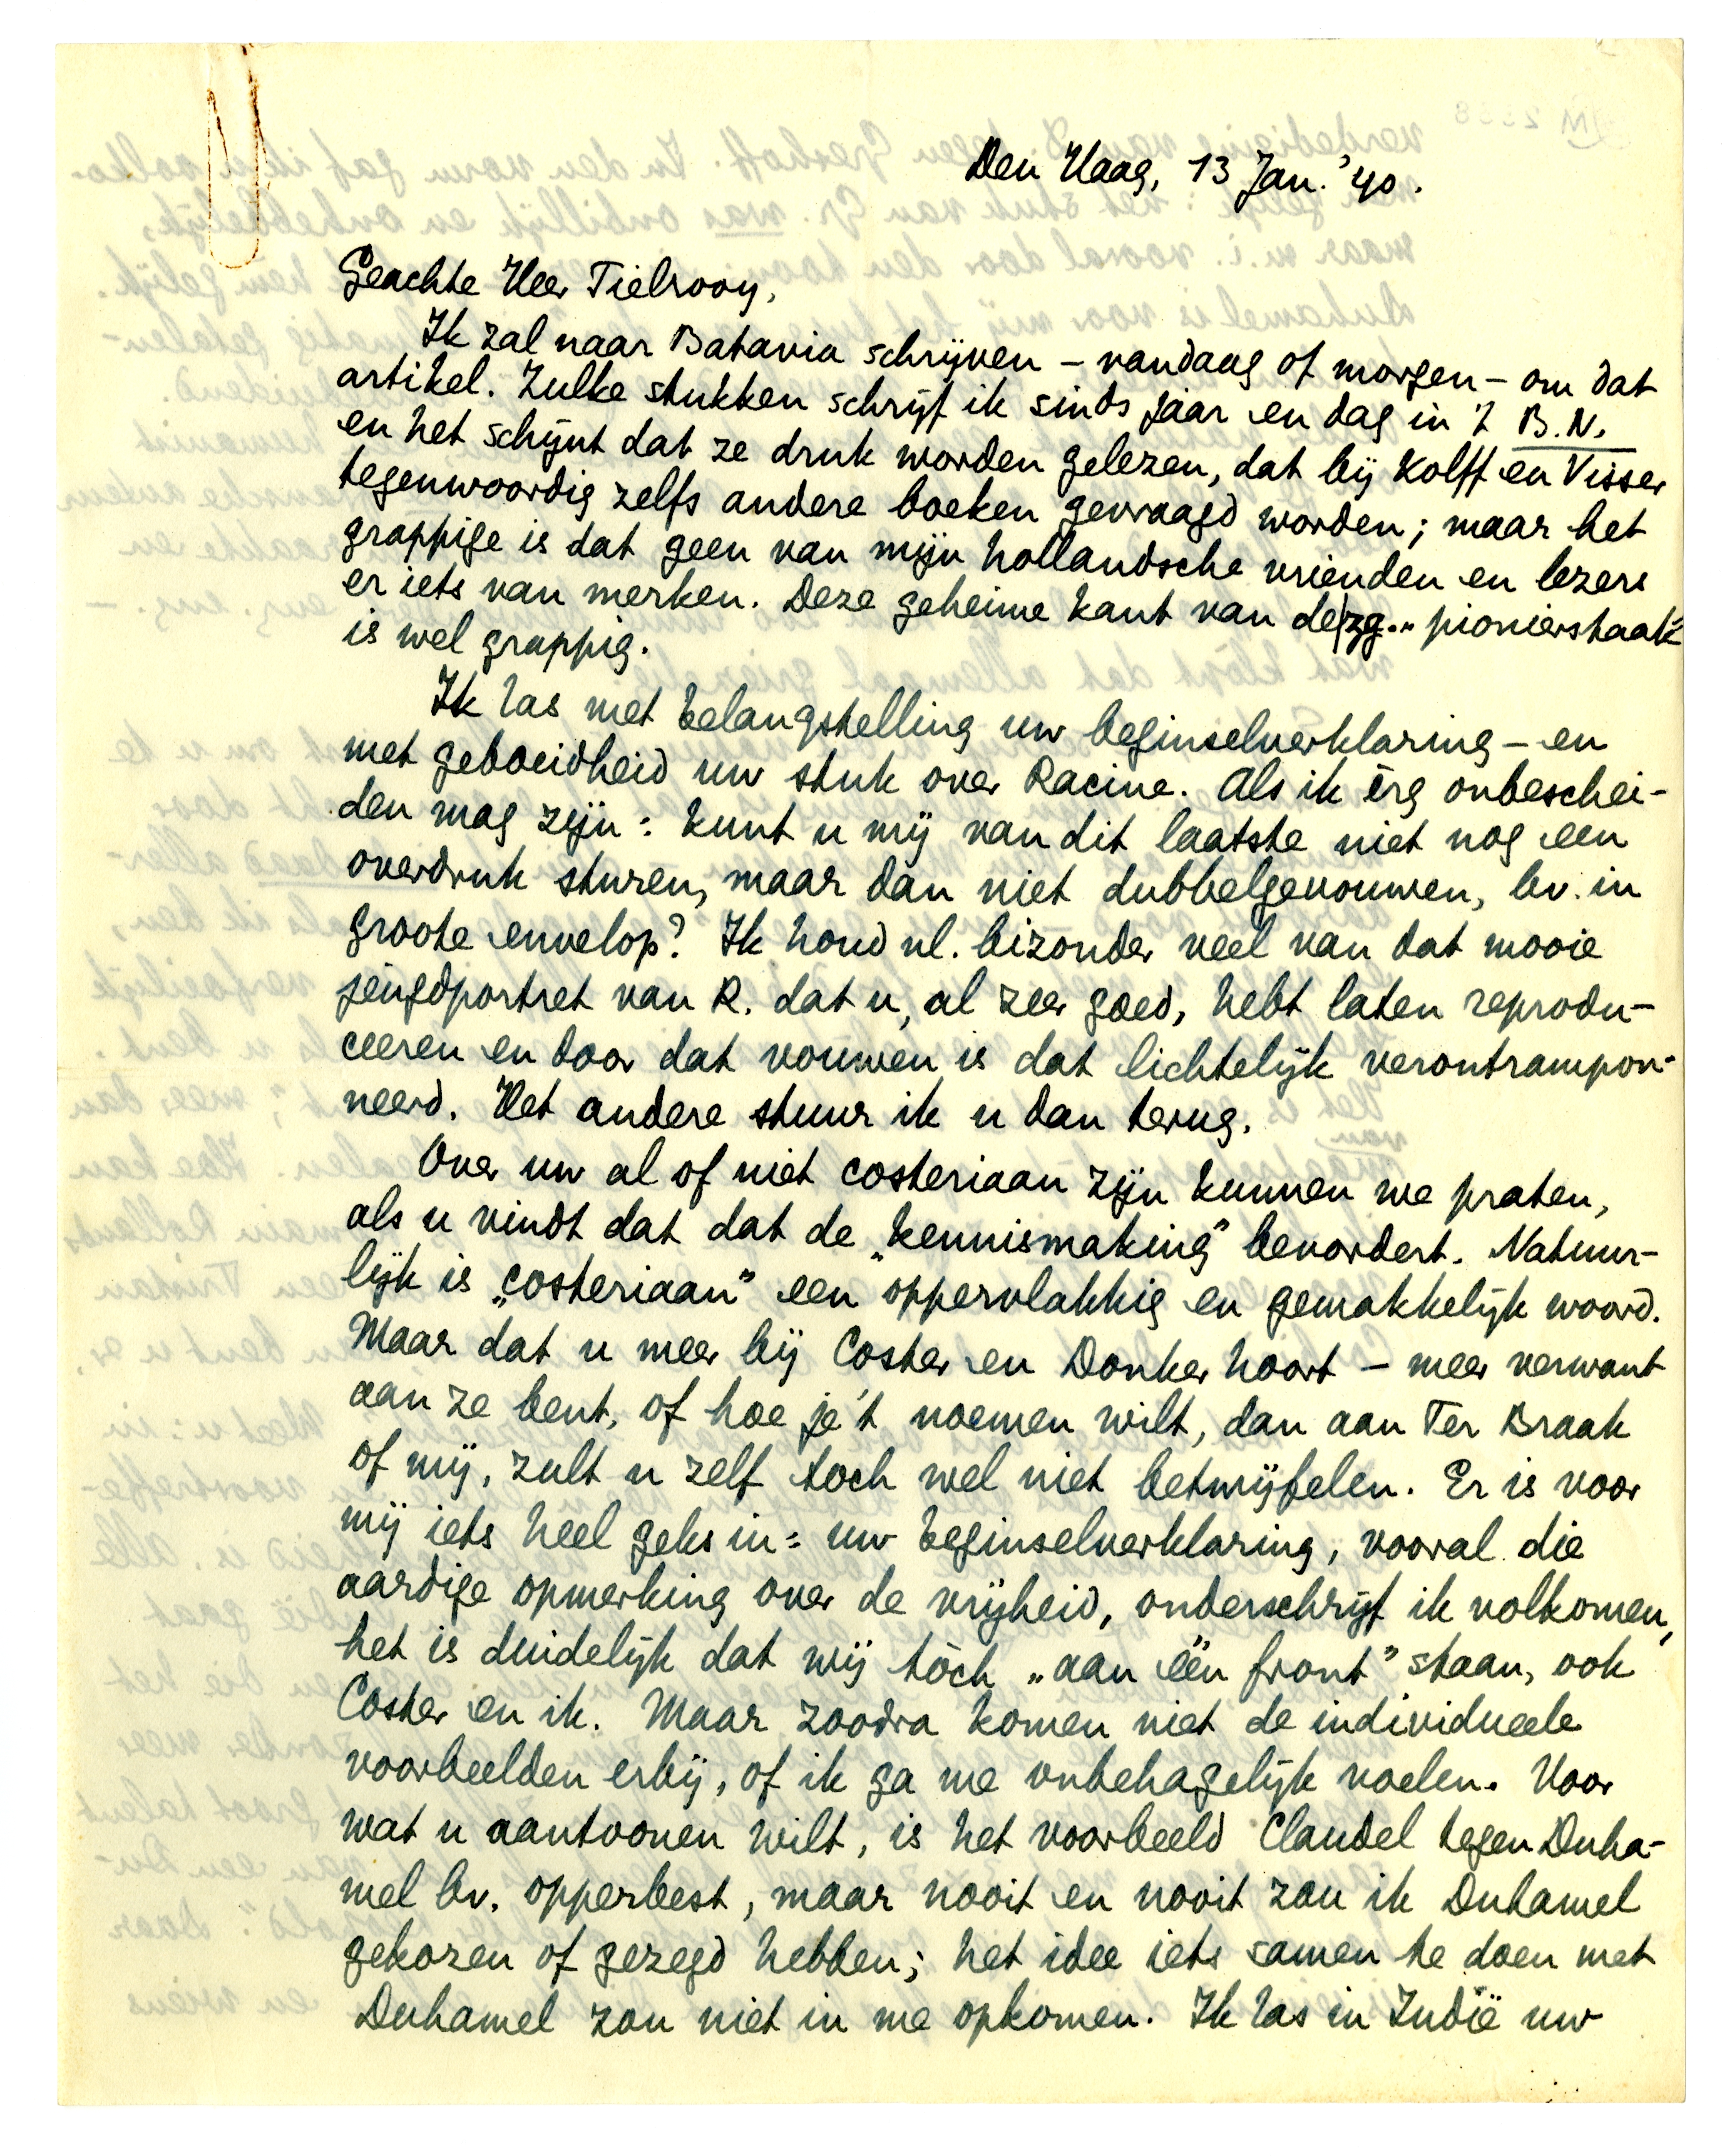 Den Haag, 13 Jan. '40.
Geachte Heer Tielrooy,
Ik zal naar Batavia schrijven – vandaag of morgen – om dat
artikel. Zulke stukken schrijf ik sinds jaar en dag in 't B.N.
en het schijnt dat ze druk worden gelezen, dat bij Kolff en Visser
tegenwoordig zelfs andere boeken gevraagd worden; maar het
grappige is dat geen van mijn hollandsche vrienden en lezers
er iets van merken. Deze geheime kant van de zg. „pionierstaak"
is wel grappig.
Ik las met belangstelling uw beginselverklaring – en
met geboeidheid uw stuk over Racine. Als ik èrg onbeschei-
den mag zijn: kunt u mij van dit laatste niet nog een
overdruk sturen, maar dan niet dubbelgevouwen, bv. in
groote envelop? Ik houd nl. bizonder veel van dat mooie
jeugdportret van R. dat u, al zeer goed, hebt laten reprodu-
ceeren en door dat vouwen is dat lichtelijk verontrampon-
neerd. Het andere stuur ik u dan terug.
Over uw al of niet costeriaan zijn kunnen we praten,
als u vindt dat dat de „kennismaking" bevordert. Natuur-
lijk is „costeriaan" een oppervlakkig en gemakkelijk woord.
Maar dat u meer bij Coster en Donker hoort – meer verwant
aan ze bent, of hoe je 't noemen wilt, dan aan Ter Braak
of mij, zult u zelf toch wel niet betwijfelen. Er is voor
mij iets heel geks in: uw beginselverklaring, vooral die
aardige opmerking over de vrijheid, onderschrijf ik volkomen,
het is duidelijk dat wij tòch „aan één front" staan, ook
Coster en ik. Maar zoodra komen niet de individueele
voorbeelden erbij, of ik ga me onbehagelijk voelen. Voor
wat u aantoonen wilt, is het voorbeeld Claudel tegen Duha-
mel bv. opperbest, maar nooit en nooit zou ik Duhamel
gekozen of gezegd hebben; het idee iets samen te doen met
Duhamel zou niet in me opkomen. Ik las in Indië uw